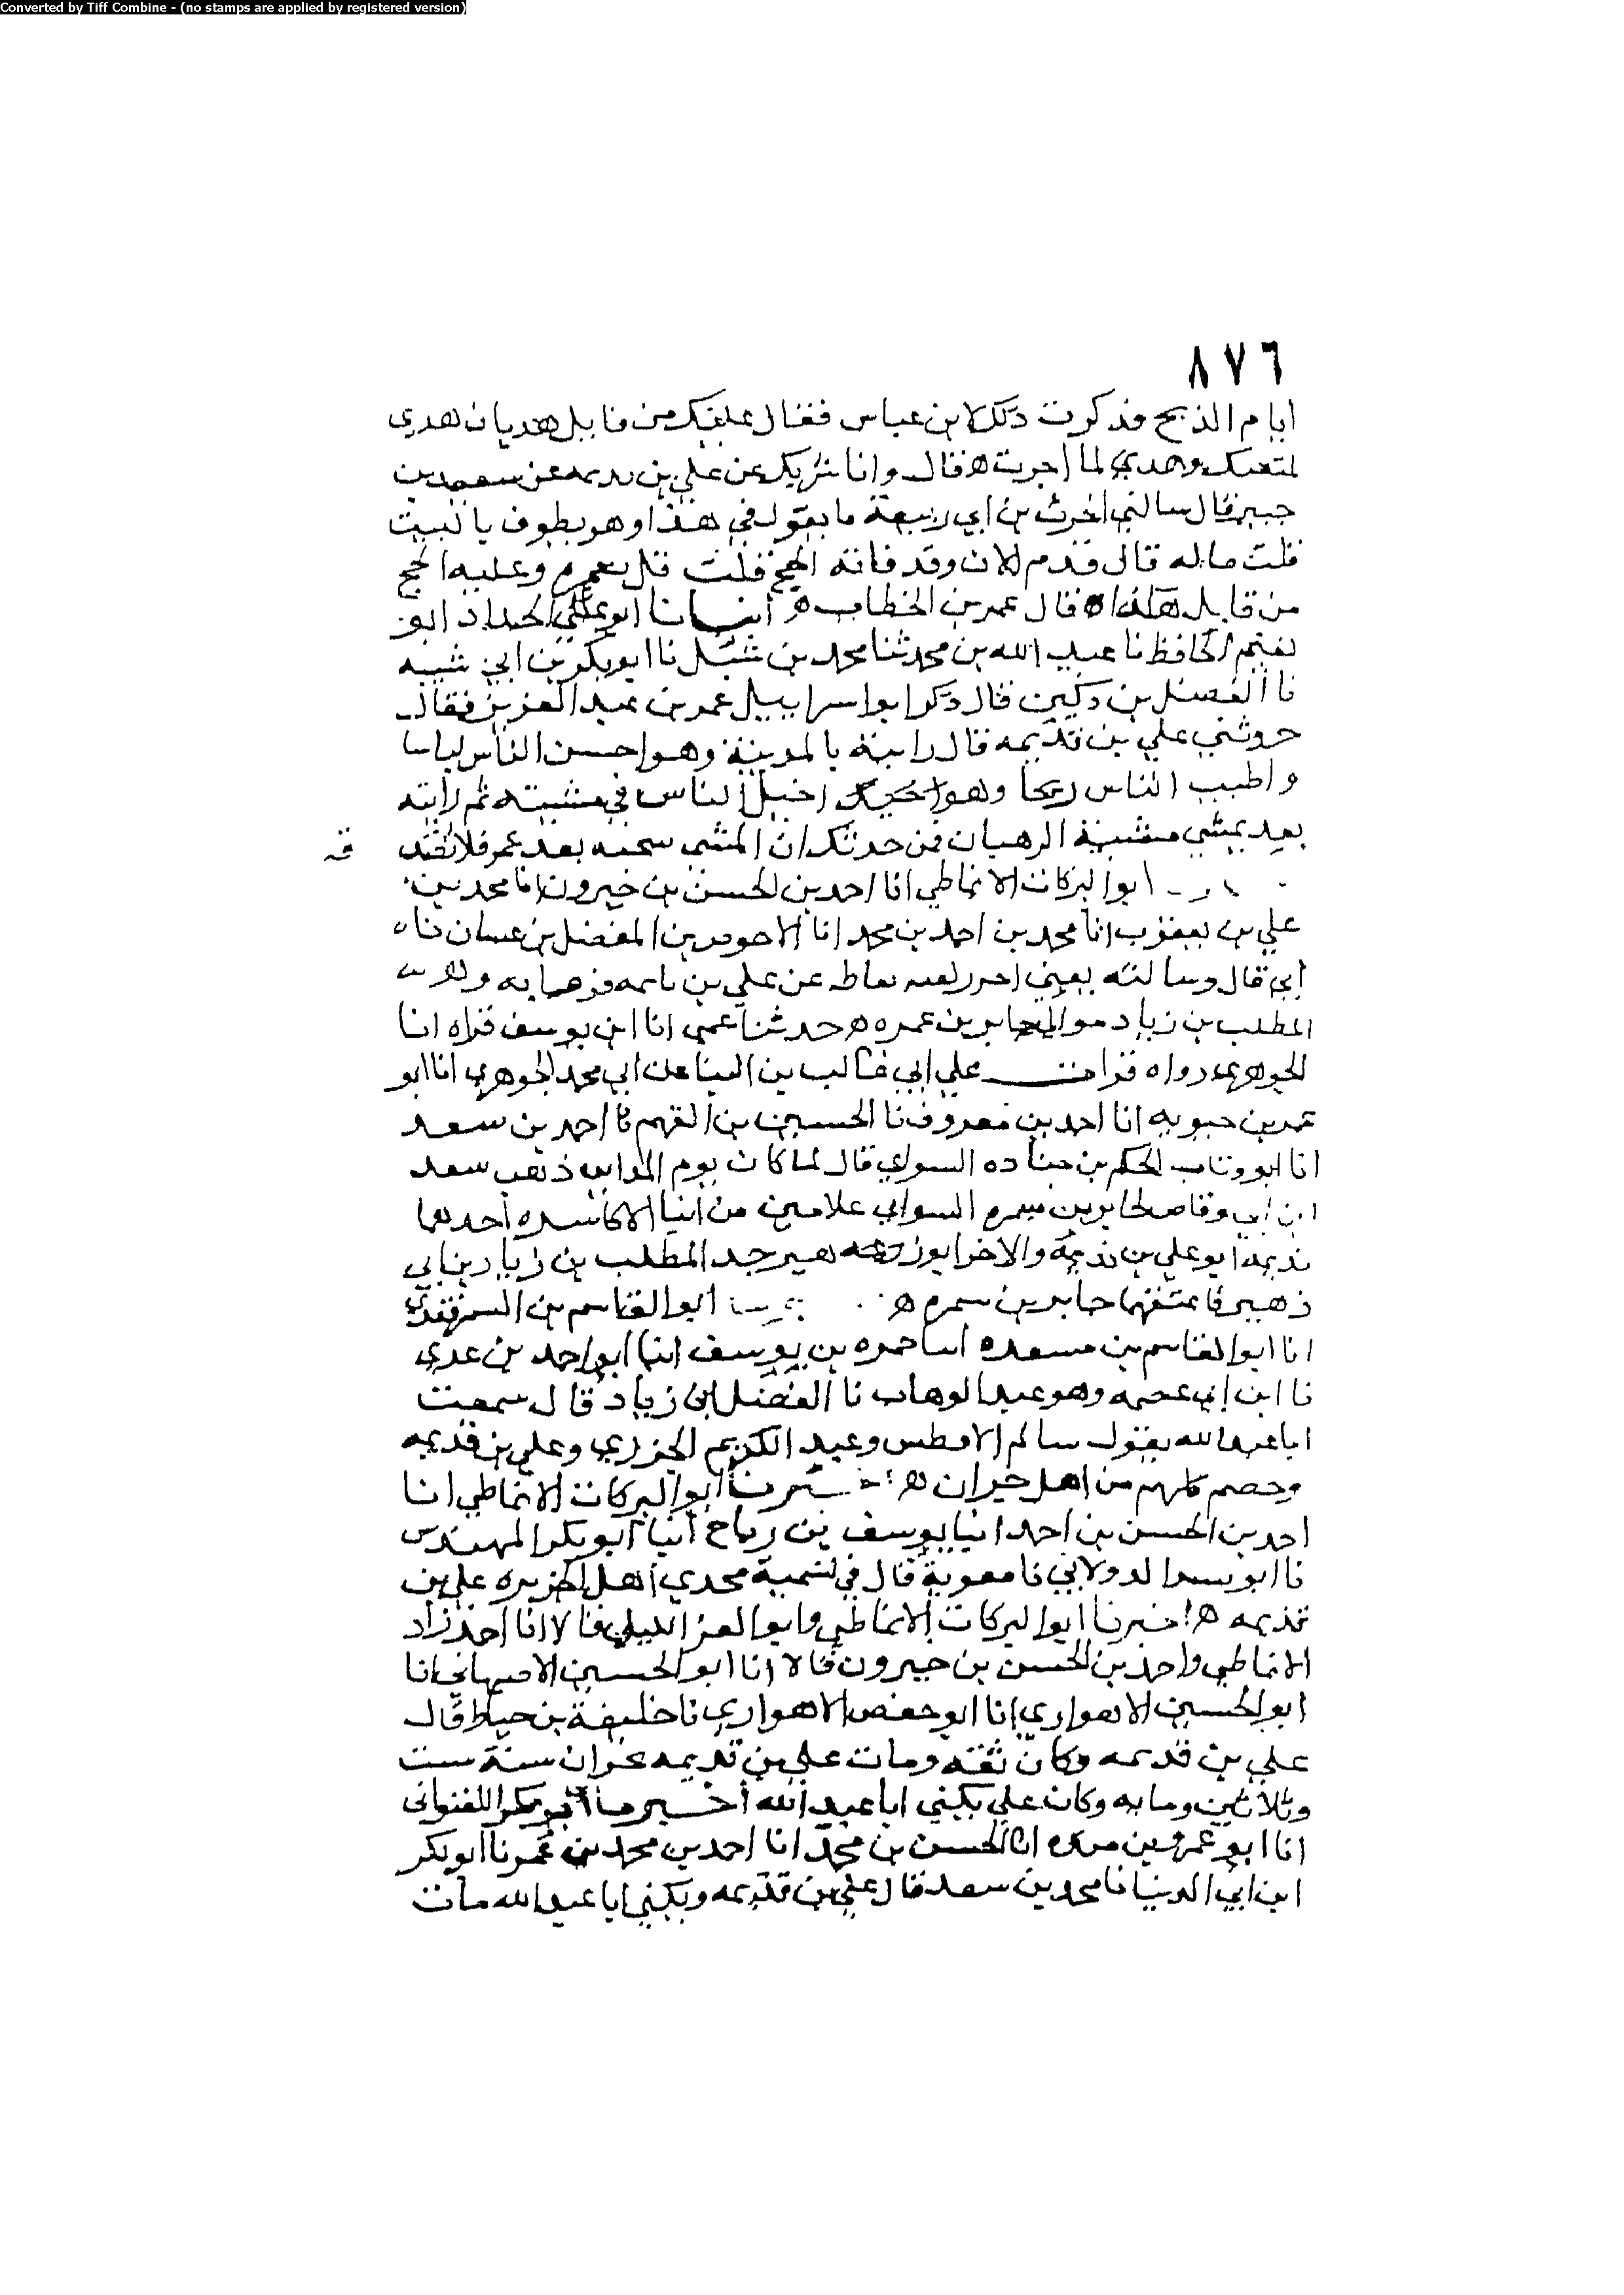 Converted by Tiff Combine - (no stamps are applied by registered version)
٨٧٦
ايام الذبح فذكرت ذلك لابن عباس فقال عليك من قابل هديان هدي
لمتعتك وهدي لما اخرت ه قال وانا شريك عن علي بن بديمه عن سعيد بن
جبير قال سالني الحرث بن ابي ربيعة ما يقول في هذا وهو يطوف بالبيت
قلت ماله قال قدم الان وقد فاته الحج قلت قل بعمره وعليه الحج
من قابل هكذا قال عمر بن الخطاب ه انبانا ابو علي الحداد ابو
نعيم الحافظ نا عبد الله بن محمد ثنا محمد بن شبل نا ابو بكر بن ابي شيبه
نا الفضل بن دكين قال ذكر ابو اسراييل عمر بن عبد العزيز فقال
حدثني علي بن بذيمه قال رايته بالمدينة وهو احسن الناس لباسا
واطيب الناس ريحا وهو اخيل الناس في مشيته ثم رايته
بعد يمشي مشية الرهبان فمن حدثك ان المشي سجيه بعد عمر فلا تصدقه
ابو البركات الانماطي انا احمد بن الحسن بن خيرون انا محمد بن
علي بن يعقوب انا محمد بن احمد بن محمد انا الاحوص بن المفضل بن غسان نا
ابي قال وسالته يعني عن علي بن
المطلب بن زياد مولي جابر بن سمره ه حدثنا عمي انا ابن يوسف قراه انا
الجوهري رواه قرات علي ابي غالب بن البنا عن ابي محمد الجوهري انا ابو
عمر بن حيويه انا احمد بن معروف نا الحسين بن الفهم نا احمد بن سعد
انا الحكم بن جناده السواي قال لما كان يوم المداين ذهب سعد
ابن ابي وقاص لجابر بن سمره السواي غلامين من ابنا الاكاسره احدهما
بذيمه ابو علي بن بذيمة والاخر ابو زهير جد المطلب بن زياد بن ابي
زهير فاعتقهما جابر بن سمره ه ابو القاسم بن السمرقندي
انا ابو القاسم بن مسعده انا حمزه بن يوسف انا ابو احمد بن عدي
نا ابن ابي عصمه وهو عبد الوهاب نا الفضل بن زياد قال سمعت
ابا عبد الله يقول سالم الافطس وعبد الكريم الجزري وعلي بن بذيمه
وخصيف كلهم من اهل حران ه اخبرنا ابو البركات الانماطي انا
احمد بن الحسن بن احمد انبا يوسف بن رباح انبا ابو بكر المهندس
نا ابو بشر الدولابي نا معوية قال في تسمية محدثي اهل الجزيره علي بن
بذيمه ه اخبرنا ابو البركات الانماطي وابو العز الكيلي قالا انا احمد زاد
الانماطي واحمد بن الحسن بن خيرون قالا انا ابو الحسين الاصبهاني انا
ابو الحسين الاهوازي انا ابو حفص الاهوازي نا خليفة بن خياط قال
علي بن بذيمه وكان ثقه ومات علي بن بذيمه بحران سنة ست
وثلاثين ومايه وكان علي يكني ابا عبد الله اخبرنا ابو بكر اللفتواني
انا ابو عمرو بن منده انا الحسن بن محمد انا احمد بن محمد بن عمر نا ابو بكر
ابن ابي الدنيا نا محمد بن سعد قال علي بن بذيمه ويكني ابا عبد الله مات